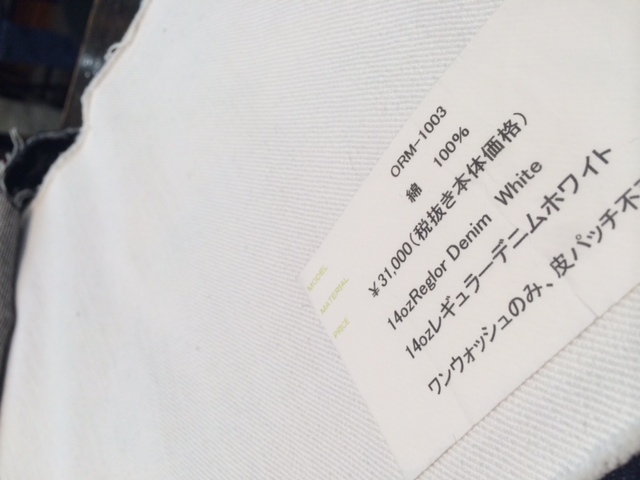 MODEL ORM-1003
MATERIAL 綿 100%
PRICE ¥31,000(税抜き本体価格)
14ozReglor Denim White
14ozレギュラーデニムホワイト
ワンウォッシュのみ、皮パッチ不